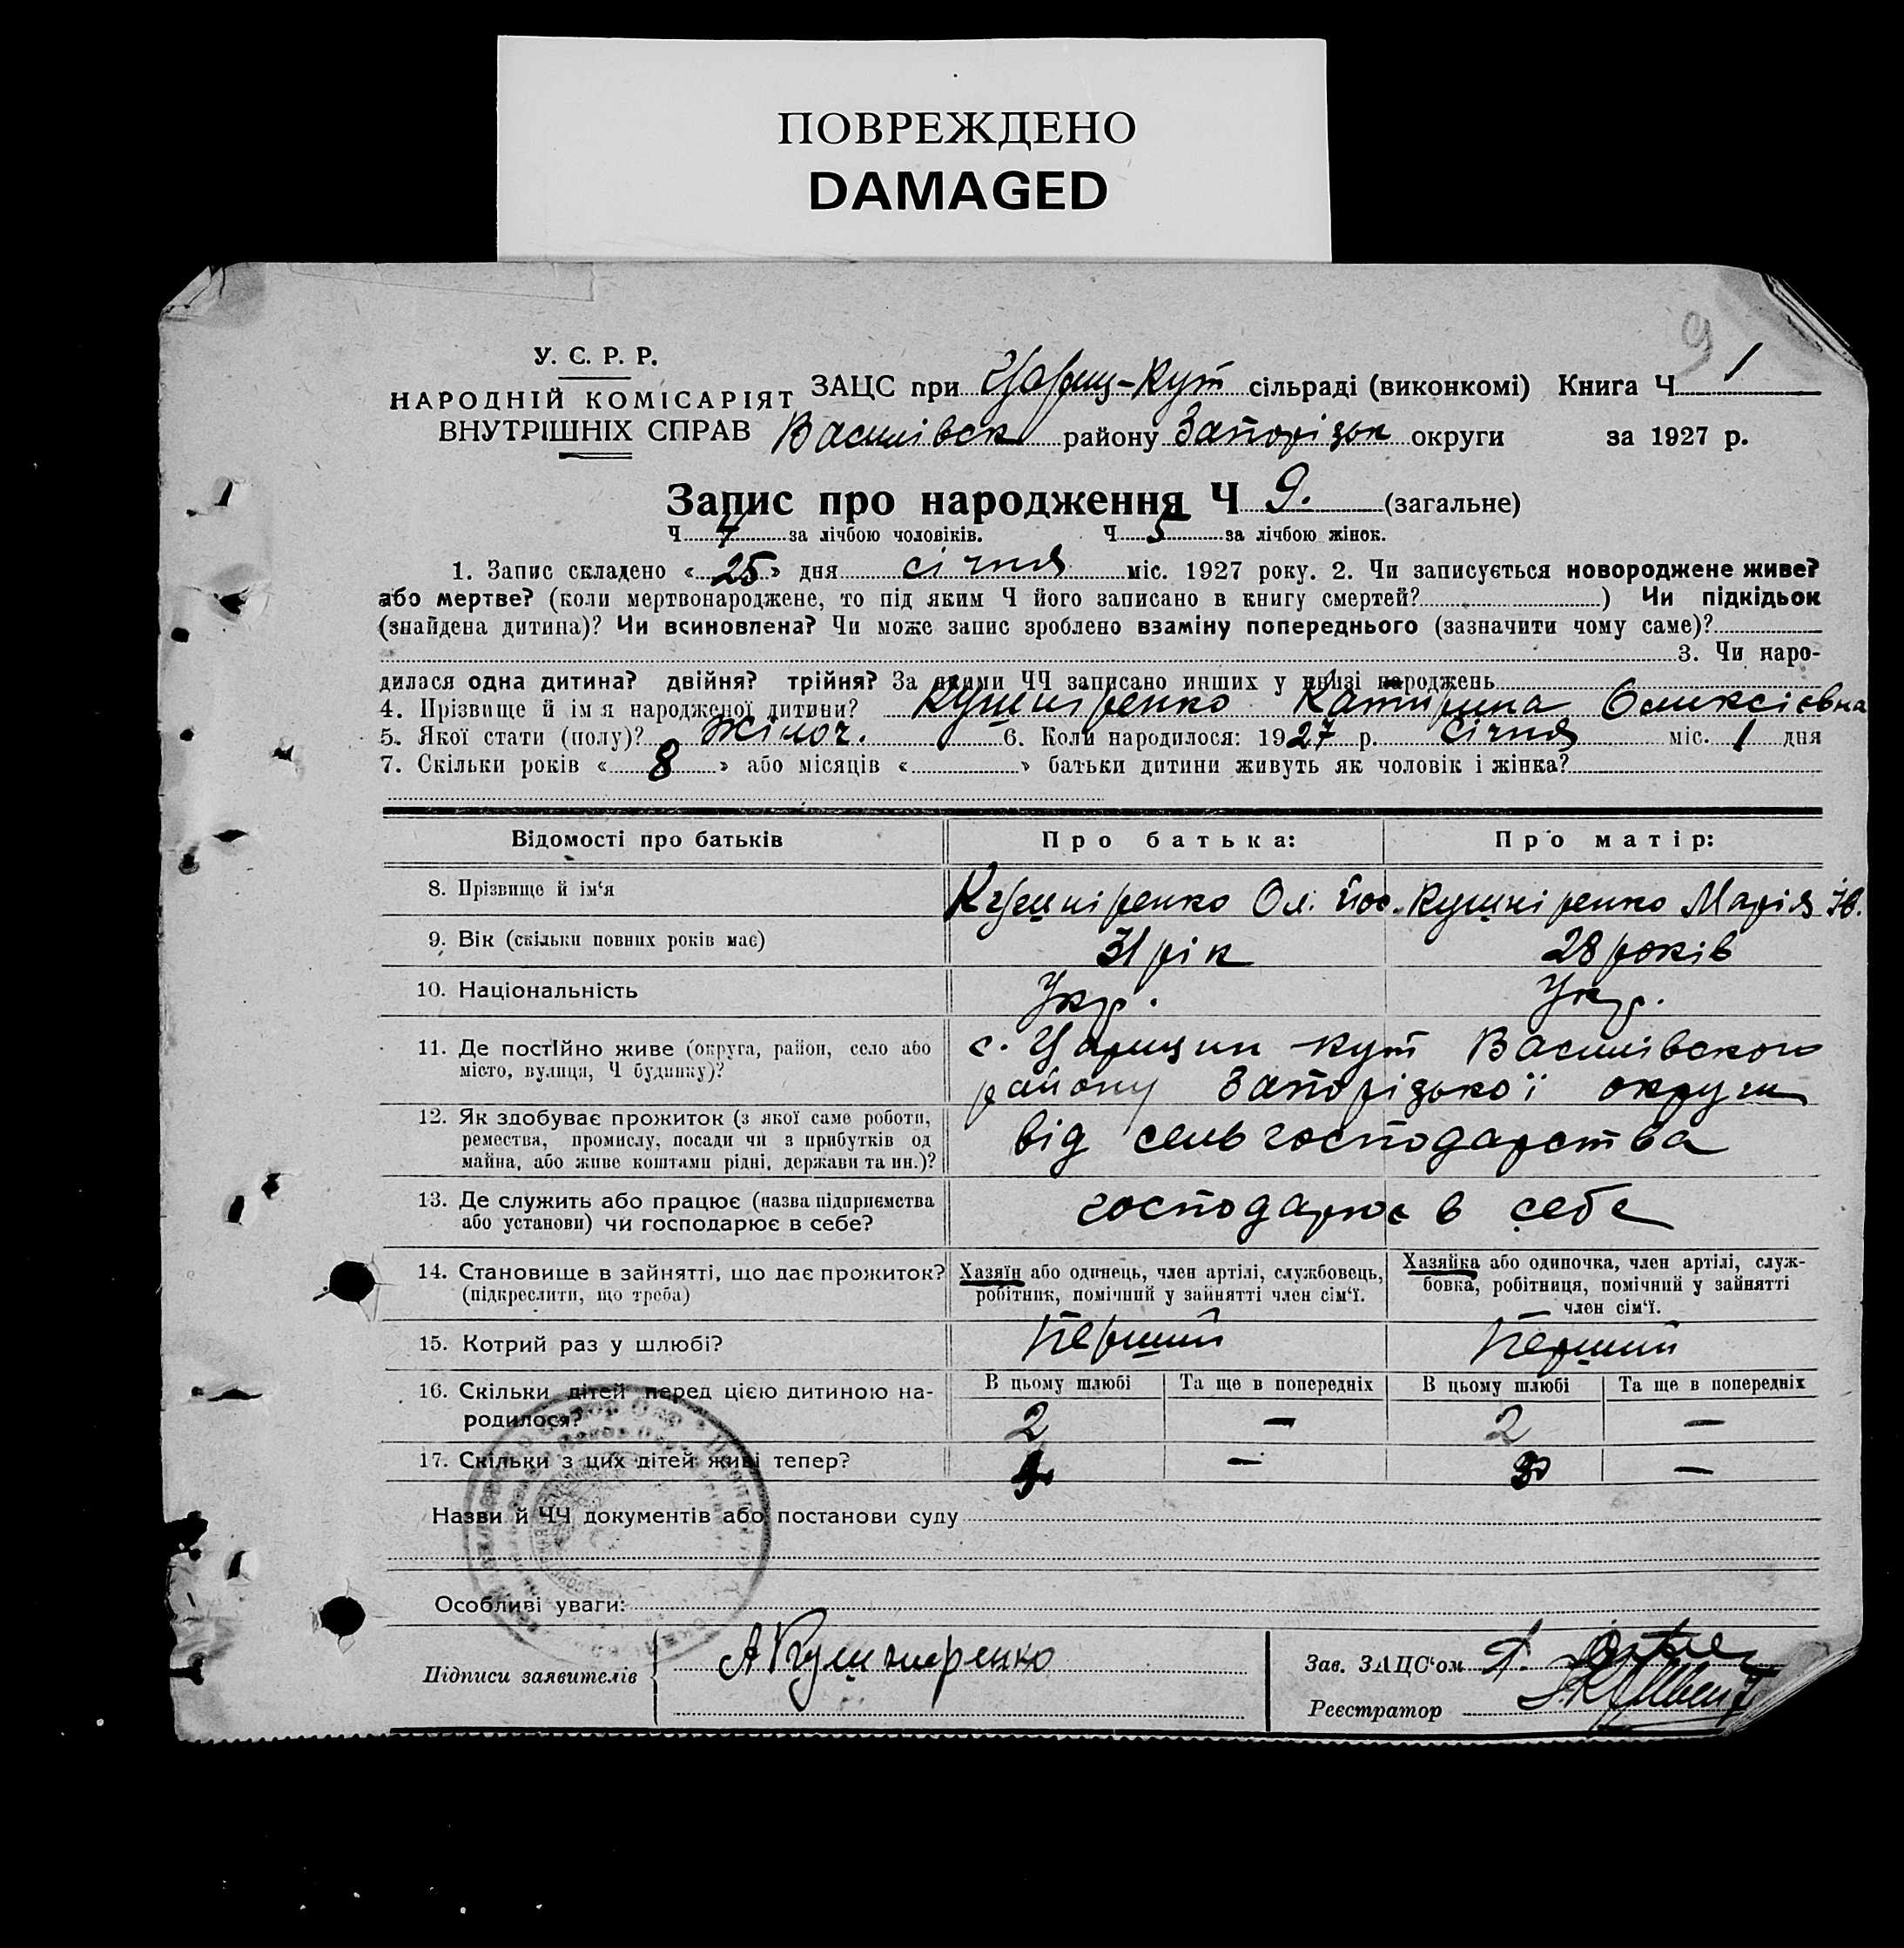 ПОВРЕЖДЕНО
DAMAGED
9
У. С. Р. Р.
НАРОДНІЙ КОМІСАРІЯТ
ВНУТРІШНІХ СПРАВ
ЗАЦС при Цариц-Кут сільраді (виконкомі) Книга Ч 1
Василівськ району Запорізьк округи за 1927 р.
Запис про народження Ч 9. (загальне)
Ч 4 за лічбою чоловіків. Ч 5 за лічбою жінок.
1. Запис складено «25» дня січня міс. 1927 року. 2. Чи записується новороджене живе?
або мертве? (коли мертвонароджене, то під яким Ч його записано в книгу смертей? ) Чи підкідьок
(знайдена дитина)? Чи всиновлена? Чи може запис зроблено взаміну попереднього (зазначити чому саме)?
3. Чи наро-
дилася одна дитина? двійня? трійня? За якими ЧЧ записано инших у книзі народжень
4. Прізвище й ім'я народженої дитини? Кушніренко Катирина Олексієвна
5. Якої стати (полу)? жіноч. 6. Коли народилося: 1927 р. Січня міс. 1 дня
7. Скільки років «8» або місяців « » батьки дитини живуть як чоловік і жінка?
Відомості про батьків Про батька: Про матір:
8. Прізвище й ім'я Кушніренко Ол. Йос. Кушніренко Марія Ів.
9. Вік (скільки повних років має) 31 рік 28 років
10. Національність Укр. Укр.
11. Де постійно живе (округа, район, село або
місто, вулиця, Ч будинку)?
с. Царицин кут Василівського
району Запорізької округи
12. Як здобуває прожиток (з якої саме роботи,
ремества, промислу, посади чи з прибутків од
майна, або живе коштами рідні, держави та ин.)?
від сельгосподарства
13. Де служить або працює (назва підприємства
або установи) чи господарює в себе?
господарює в себе
14. Становище в зайнятті, що дає прожиток?
(підкреслити, що треба)
Хазяїн або одинець, член артілі, службовець,
робітник, помічний у зайнятті член сім'ї.
Хазяйка або одиночка, член артілі, служ-
бовка, робітниця, помічний у зайнятті
член сім'ї.
15. Котрий раз у шлюбі? Перший Перший
16. Скільки дітей перед цією дитиною на-
родилося?
В цьому шлюбі Та ще в попередніх В цьому шлюбі Та ще в попередніх
2 — 2 —
17. Скільки з цих дітей живі тепер? — —
Назви й ЧЧ документів або постанови суду
Особливі уваги:
Підписи заявителів А Кушниренко
Зав. ЗАЦС'ом
Реєстратор